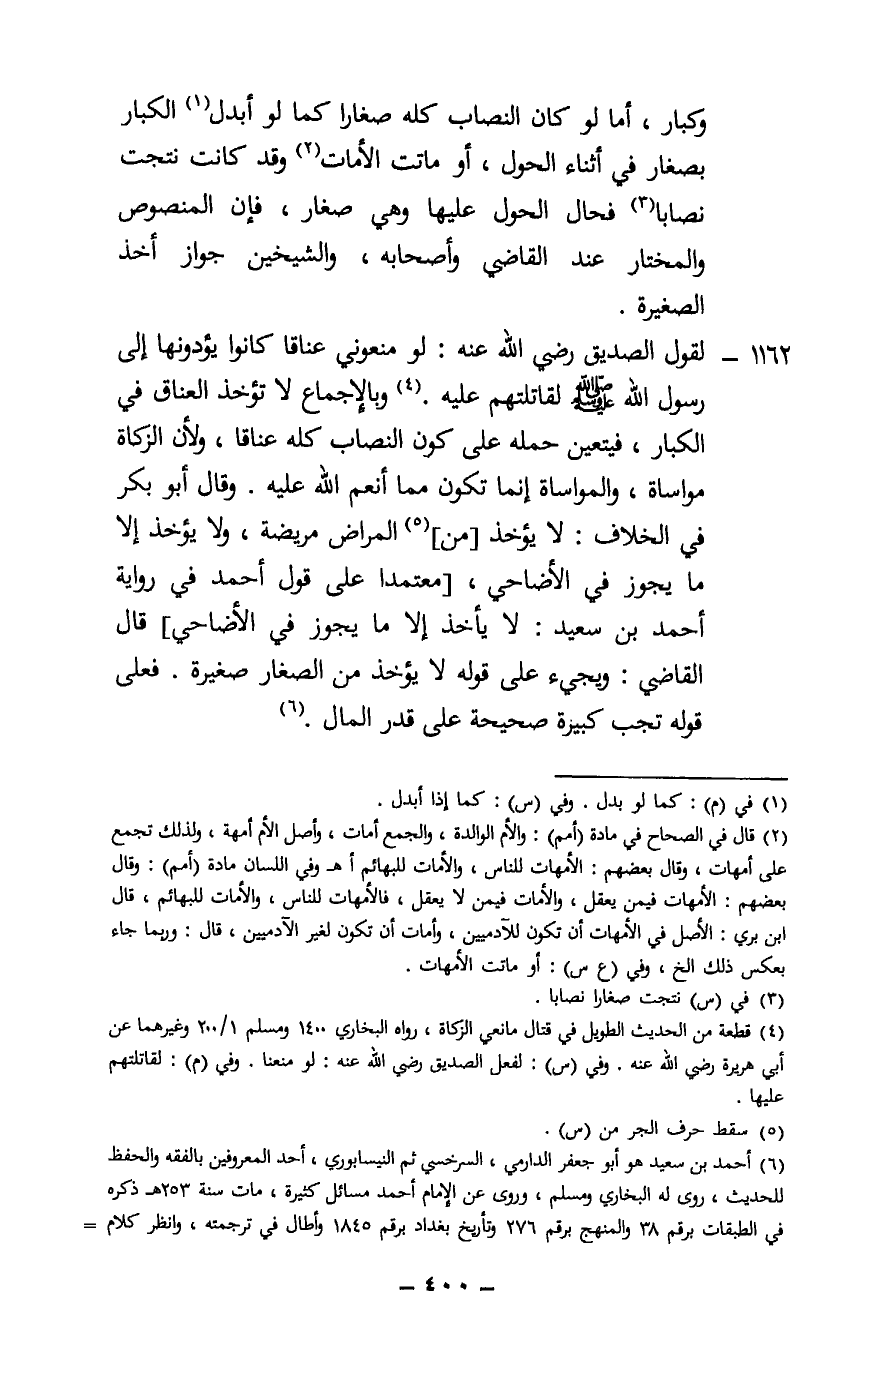 وكبار ، أما لو كان النصاب كله صغارا كما لو أبدل(١) الكبار
بصغار في أثناء الحول ، أو ماتت الأمات(٢) وقد كانت نتجت
نصابا(٣) فحال الحول عليها وهي صغار ، فإن المنصوص
والمختار عند القاضي وأصحابه ، والشيخين جواز أخذ
الصغيرة .
١١٦٢ ــ لقول الصديق رضي الله عنه : لو منعوني عناقا كانوا يؤدونها إلى
رسول الله ﷺ لقاتلتهم عليه .(٤) وبالإجماع لا تؤخذ العناق في
الكبار ، فيتعين حمله على كون النصاب كله عناقا ، ولأن الزكاة
مواساة ، والمواساة إنما تكون مما أنعم الله عليه . وقال أبو بكر
في الخلاف : لا يؤخذ [من](٥) المراض مريضة ، ولا يؤخذ إلا
ما يجوز في الأضاحي ، [معتمدا على قول أحمد في رواية
أحمد بن سعيد : لا يأخذ إلا ما يجوز في الأضاحي] قال
القاضي : ويجيء على قوله لا يؤخذ من الصغار صغيرة . فعلى
قوله تجب كبيرة صحيحة على قدر المال .(٦)
(١) في (م) : كما لو بدل . وفي (س) : كما إذا أبدل .
(٢) قال في الصحاح في مادة (أمم) : والأم الوالدة ، والجمع أمات ، وأصل الأم أمهة ، ولذلك تجمع
على أمهات ، وقال بعضهم : الأمهات للناس ، والأمات للبهائم أ هـ وفي اللسان مادة (أمم) : وقال
بعضهم : الأمهات فيمن يعقل ، والأمات فيمن لا يعقل ، فالأمهات للناس ، والأمات للبهائم ، قال
ابن بري : الأصل في الأمهات أن تكون للآدميين ، وأمات أن تكون لغير الآدميين ، قال : وربما جاء
بعكس ذلك الخ ، وفي (ع س) : أو ماتت الأمهات .
(٣) في (س) نتجت صغارا نصابا .
(٤) قطعة من الحديث الطويل في قتال مانعي الزكاة ، رواه البخاري ١٤٠٠ ومسلم ٢٠٠/١ وغيرهما عن
أبي هريرة رضي الله عنه . وفي (س) : لفعل الصديق رضي الله عنه : لو منعنا . وفي (م) : لقاتلتهم
عليها .
(٥) سقط حرف الجر من (س) .
(٦) أحمد بن سعيد هو أبو جعفر الدارمي ، السرخسي ثم النيسابوري ، أحد المعروفين بالفقه والحفظ
للحديث ، روى له البخاري ومسلم ، وروى عن الإمام أحمد مسائل كثيرة ، مات سنة ٢٥٣هـ ذكره
في الطبقات برقم ٣٨ والمنهج برقم ٢٧٦ وتأريخ بغداد برقم ١٨٤٥ وأطال في ترجمته ، وانظر كلام =
ــ ٤٠٠ ــ